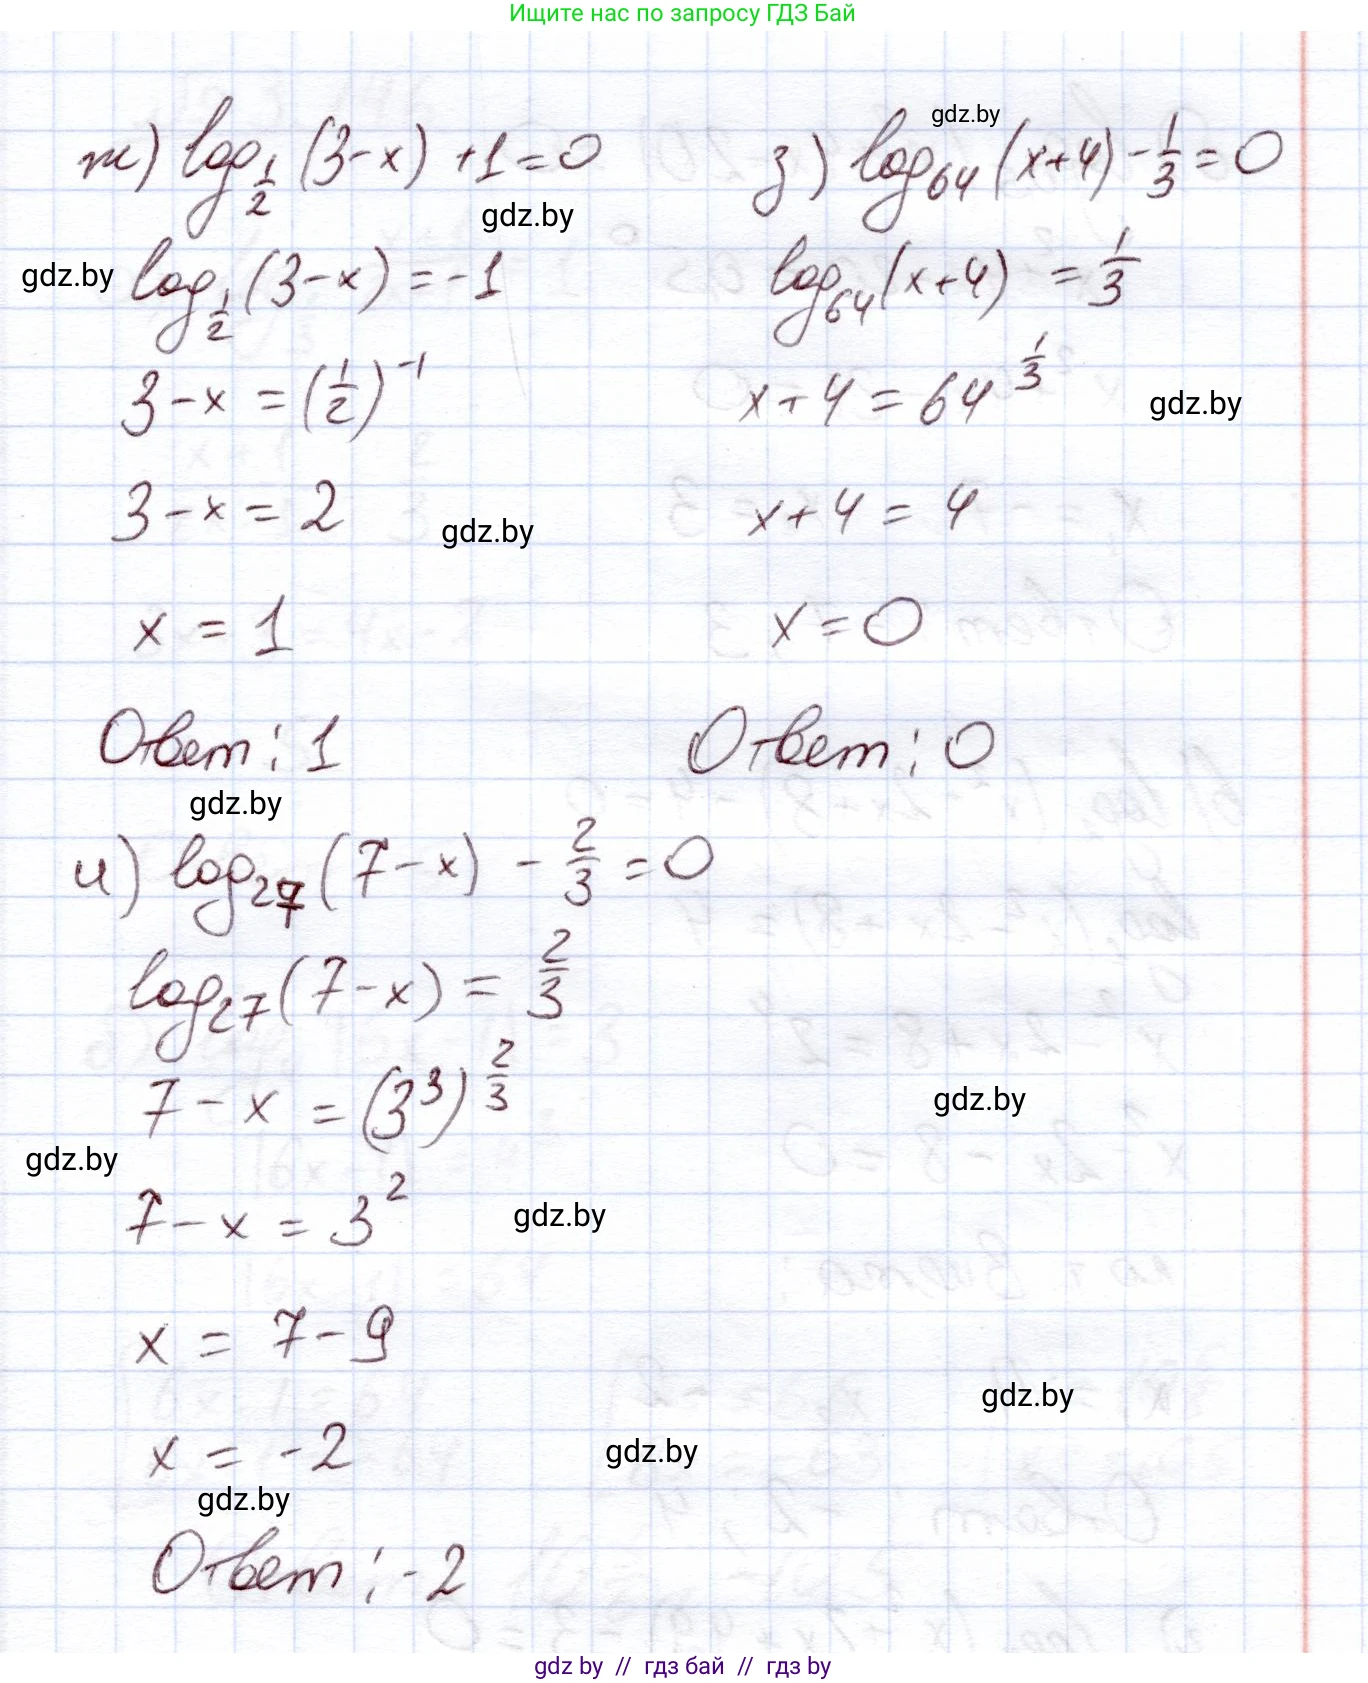 Ищите нас по запросу ГДЗ Бай
ж) log_{1/2} (3-x) +1=0
gdz.by
gdz.by
log_{1/2} (3-x) = -1
3-x = (1/2)^{-1}
3-x = 2
gdz.by
x = 1
Ответ: 1
gdz.by
gdz.by
з) log_{64} (x+4) - 1/3 = 0
log_{64} (x+4) = 1/3
x+4 = 64^{1/3}
gdz.by
x+4 = 4
x = 0
Ответ: 0
и) log_{27} (7-x) - 2/3 = 0
log_{27} (7-x) = 2/3
7-x = (3^3)^{2/3}
gdz.by
gdz.by
7-x = 3^2
gdz.by
x = 7-9
gdz.by
x = -2
gdz.by
gdz.by
Ответ: -2
gdz by // гдз бай // гдз by